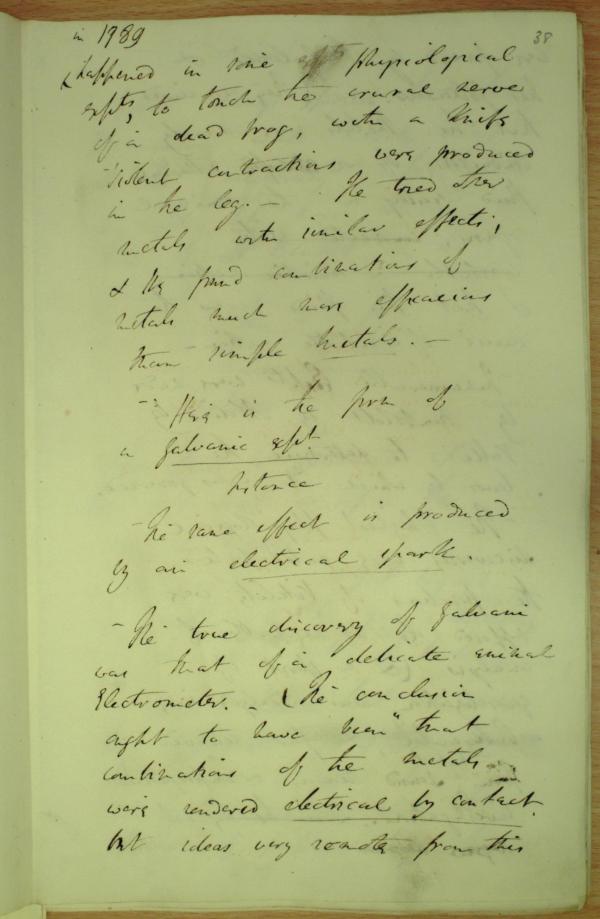 in 1789
38
(happened in some physiological
expts, to touch the crural nerve
of a dead frog, with a Knife
- Violent contractions were produced
in the leg. - He tried other
metals with similar effects,
& He found combinations of
metals much more efficacious
than simple metals. -
- Here is the form of
a Galvanic expt.
Instance
- The same effect is produced
by an electrical spark.
- The true discovery of Galvani
was that of a delicate animal
Electrometer. - (The conclusion
ought to have been" that
combinations of the metals
were rendered electrical by contact.
but ideas very remote from this